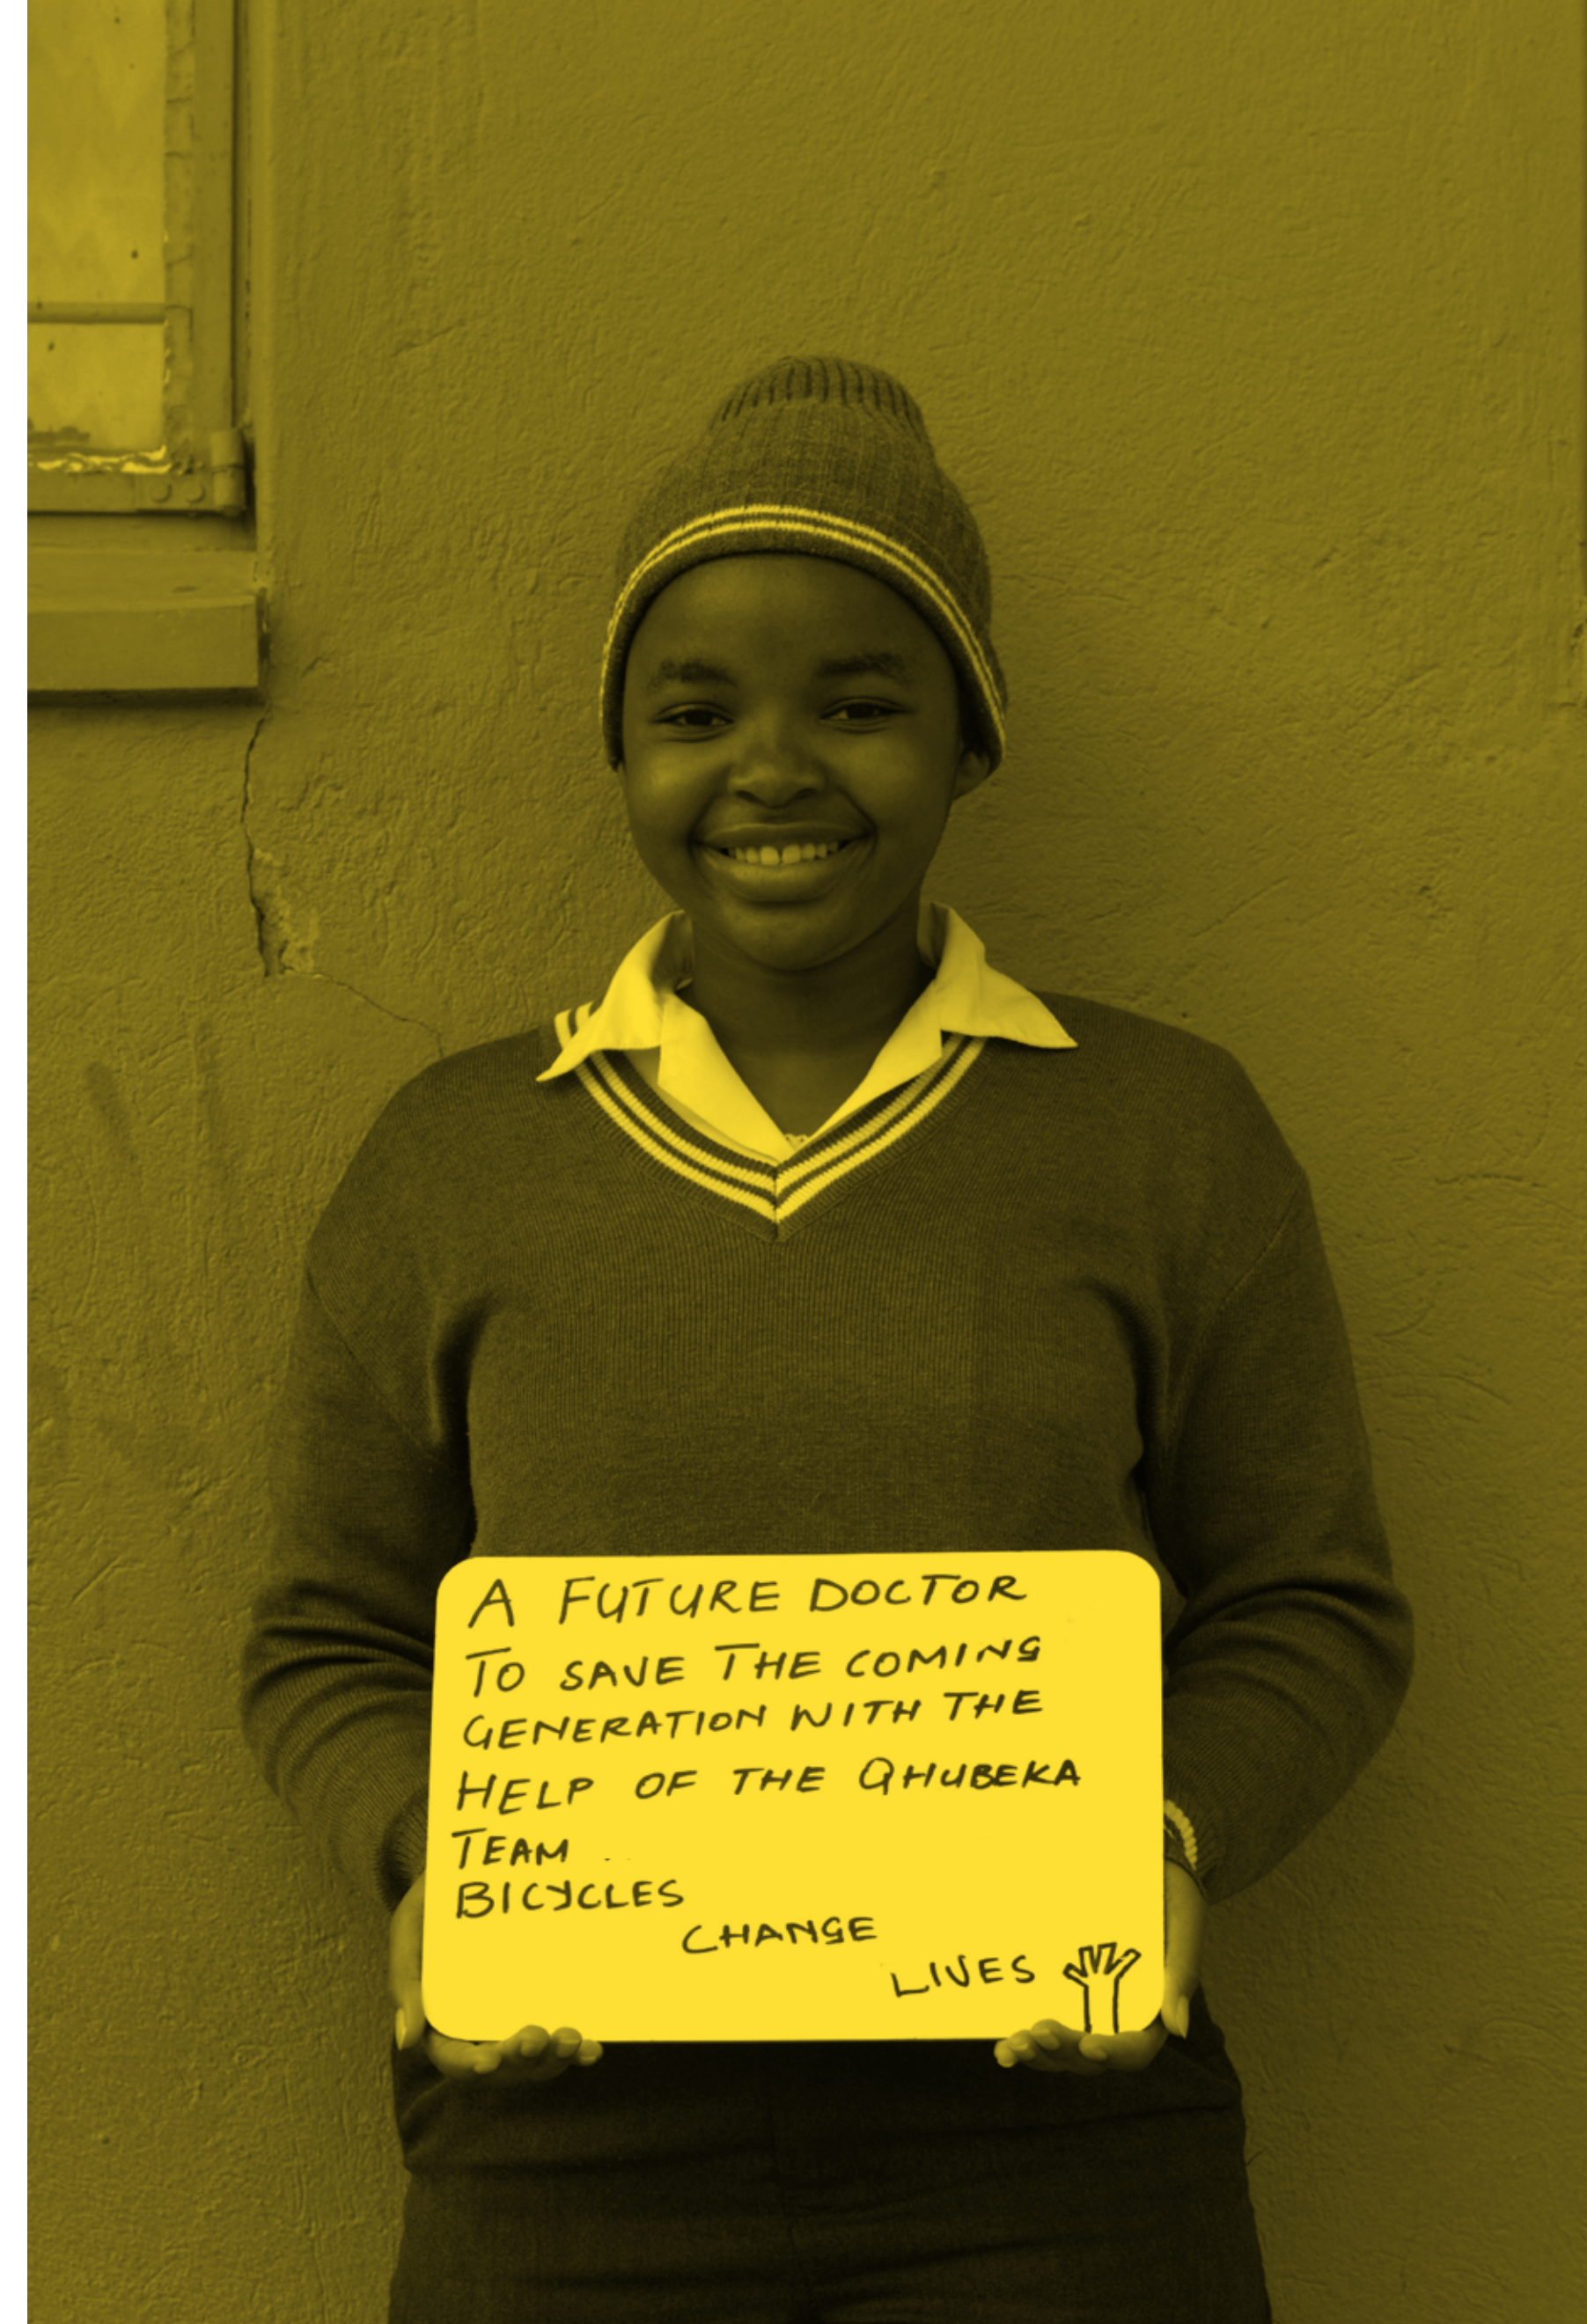 A FUTURE DOCTOR
TO SAVE THE COMING
GENERATION WITH THE
HELP OF THE QHUBEKA
TEAM ..
BICYCLES
CHANGE
LIVES